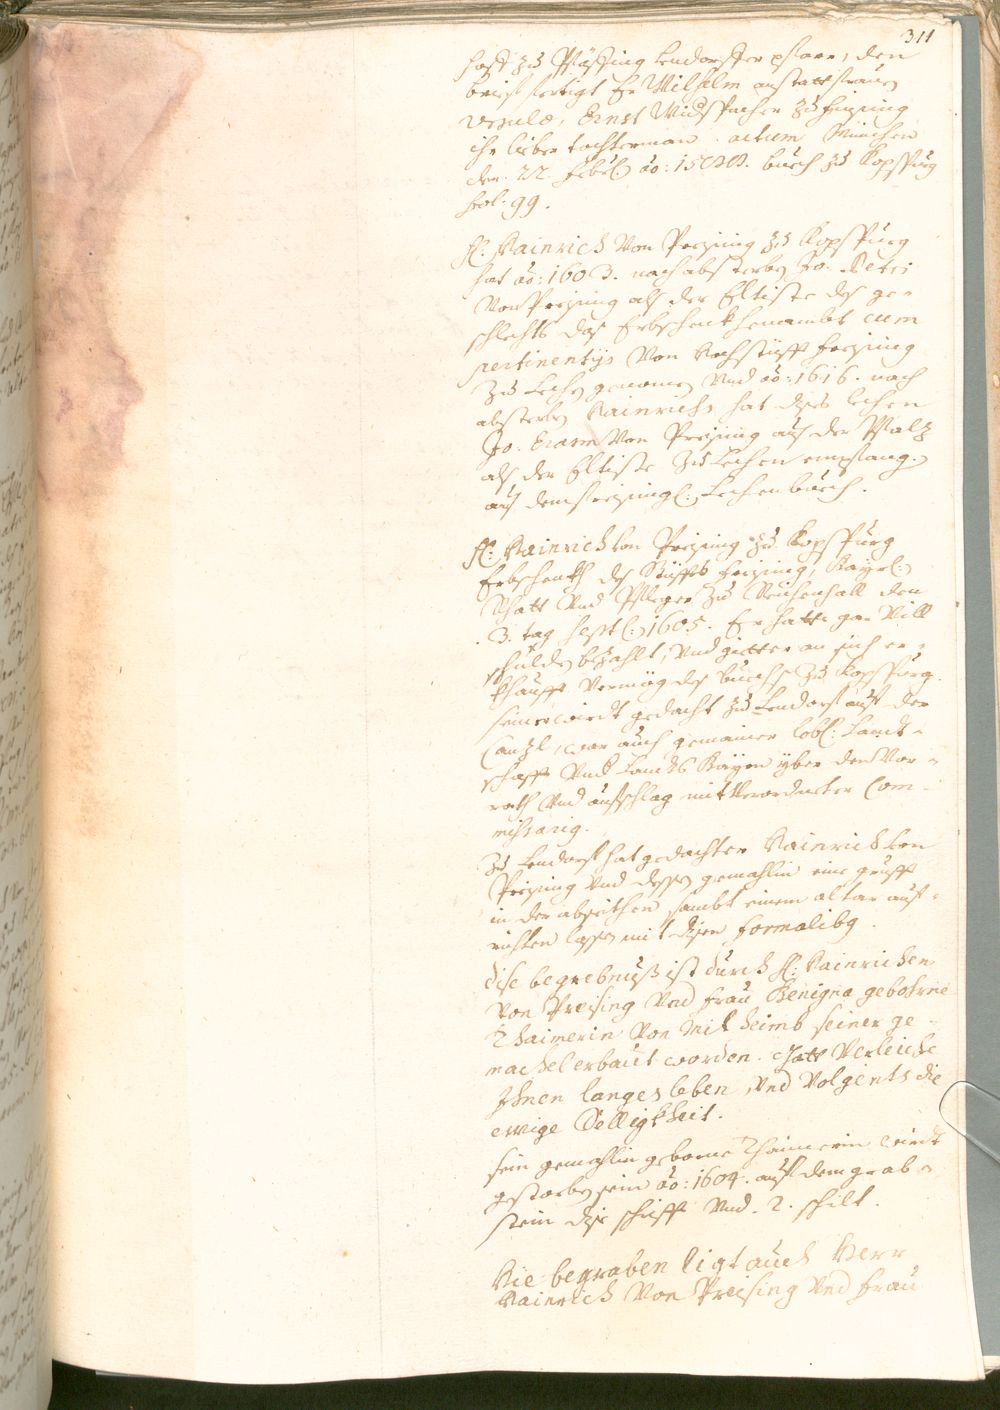 311
hoff zu Pfässing Lendorffer pfarr, den
brieff fertigt Er Wilhelm anstatt frauen
Ursulæ, Ernst Mudspacher zu
ihr lieber tochterman. actum München
den 22. Febr: ao: 15 . buech zu Kopfspurg
fol. 99.
H: Hainrich Von Preÿsing zu Kopfspurg
hat ao: 1603. nach absterben Jo. Petri
Von Preising als der Eltiste des ge-
schlechts das Erbschenkhenambt cum
pertinentijs Von Hochstüfft Freÿsing
zu Lechen genomen Vnd ao: 1616. nach
absterben Hainrichs hat diss lechen
Jo. Erasm Von Preising aus der Pfalz
als der Eltiste zu Lechen empfang.
auß dem freising: Lechenbuech.
H: Hainrich Von Preising zu Kopfspurg
Erbschenkh des Stüffts Freising, Bayrl:
Rhatt Vnd Pfleger zu Reichenhall den
3. tag Sept: 1605. Er hatte gar Vill
schulden bezahlt, Vnd gietter an sich er-
khaufft Vermög des buechs zu Kopfspurg.
seiner wirdt gedacht zu Lendorf auf der
Canzl, war auch gemainer lobl: Landt-
schafft Vnd Landts Bayrn yber den Vor-
rath Vnd aufschlag mit Verordneter Com-
missarig.
Zu Lendorf hat gedachter Hainrich Von
Preising Vnd dessen gemahlin eine grufft
in der abseithen sambt einem altar auf-
richten lassen mit disen formalibg.
dise begrebnuß ist durch H: Hainrichen
Von Preising Vnd Frau Benigna gebohrne
Thaimerin Von Milheimb seiner ge-
machel erbaut worden. Gott Verleiche
Ihnen langes leben, Vnd Volgents die
ewige Selligkheit.
sein gemahlin geborne Thaimerin wirdt
gestorben sein ao: 1604. auß dem grab-
stein dise schrifft Vnd. 2. schilt.
Hie begraben ligt auch Herr
Hainrich Von Preising Vnd Frau